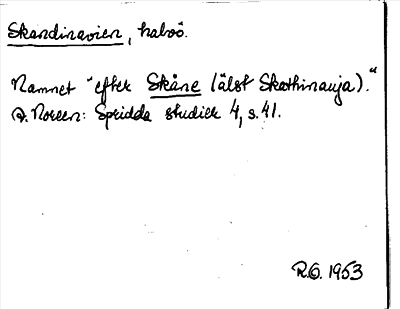 Skandinavien, halvö.
Namnet "efter Skåne (älst Skathinauja)."
A. Noreen: Spridda studier 4, s. 41.
R.O. 1953